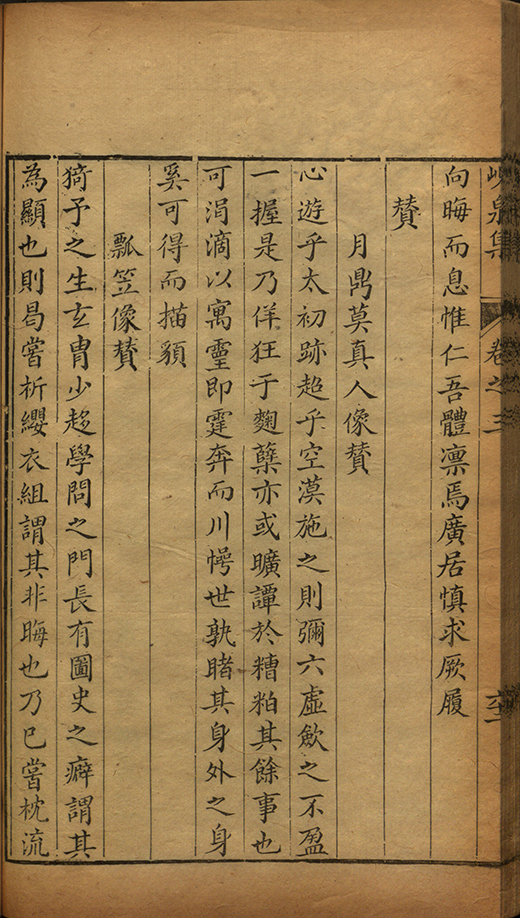 峴泉集 卷之三
向晦而息惟仁吾體凛焉廣居慎求厥履
贊
月鼎莫真人像贊
心遊乎太初跡超乎空漠施之則彌六虛歛之不盈
一握是乃佯狂于麴櫱亦或曠譚於糟粕其餘事也
可涓滴以寓靈即霆奔而川愕世孰睹其身外之身
奚可得而描貌
瓢笠像贊
猗予之生玄胄少趍學問之門長有圖史之癖謂其
為顯也則曷嘗析纓衣組謂其非晦也乃已嘗枕流